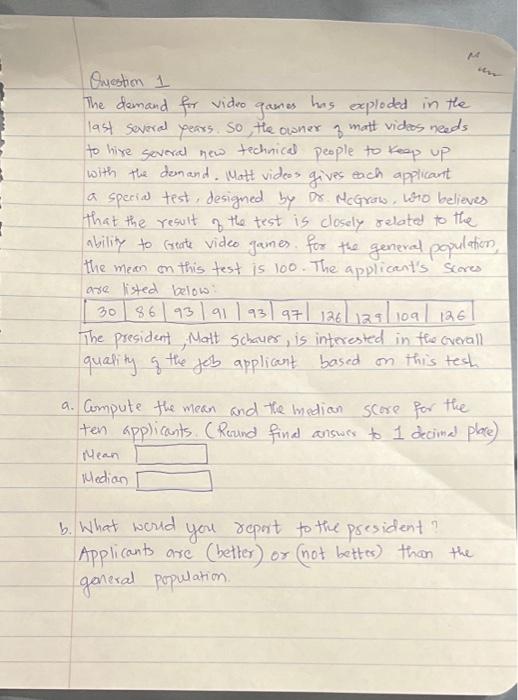 Question 1
The demand for video games has exploded in the
last several years. So, the owner of matt videos needs
to hire several new technical people to keep up
with the demand. Matt videos gives each applicant
a special test, designed by Dr. McGraw, who believes
that the result of the test is closely related to the
ability to create video games. for the general population,
the mean on this test is 100. The applicant's scores
are listed below:
30 86 93 91 93 97 126 129 109 126
The president, Matt Schauer, is interested in the overall
quality of the job applicant based on this test.
a. Compute the mean and the median score for the
ten applicants. (Round final answer to 1 decimal place)
Mean
Median
b. What would you report to the president?
Applicants are (better) or (not better) than the
general population.